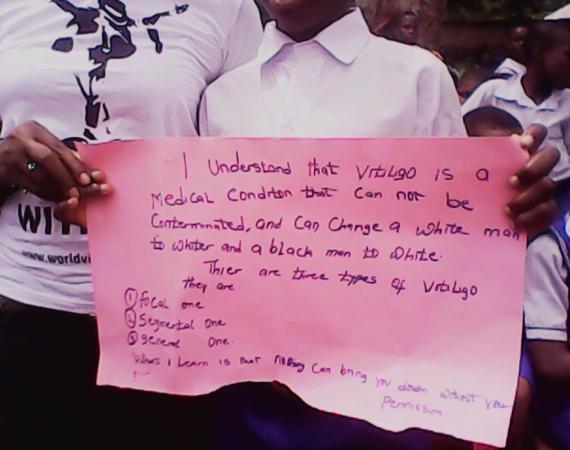 I Understand that Vitiligo is a
Medical Condition that Can not be
Conterminated, and Can Change a white man
to whiter and a black man to white.
Thier are three types of Vitiligo
they are.
① focal one
② Segmental one
③ general one.
What I Learn is that nothing Can bring you down without your
Permission.
WIT
www.worldvi